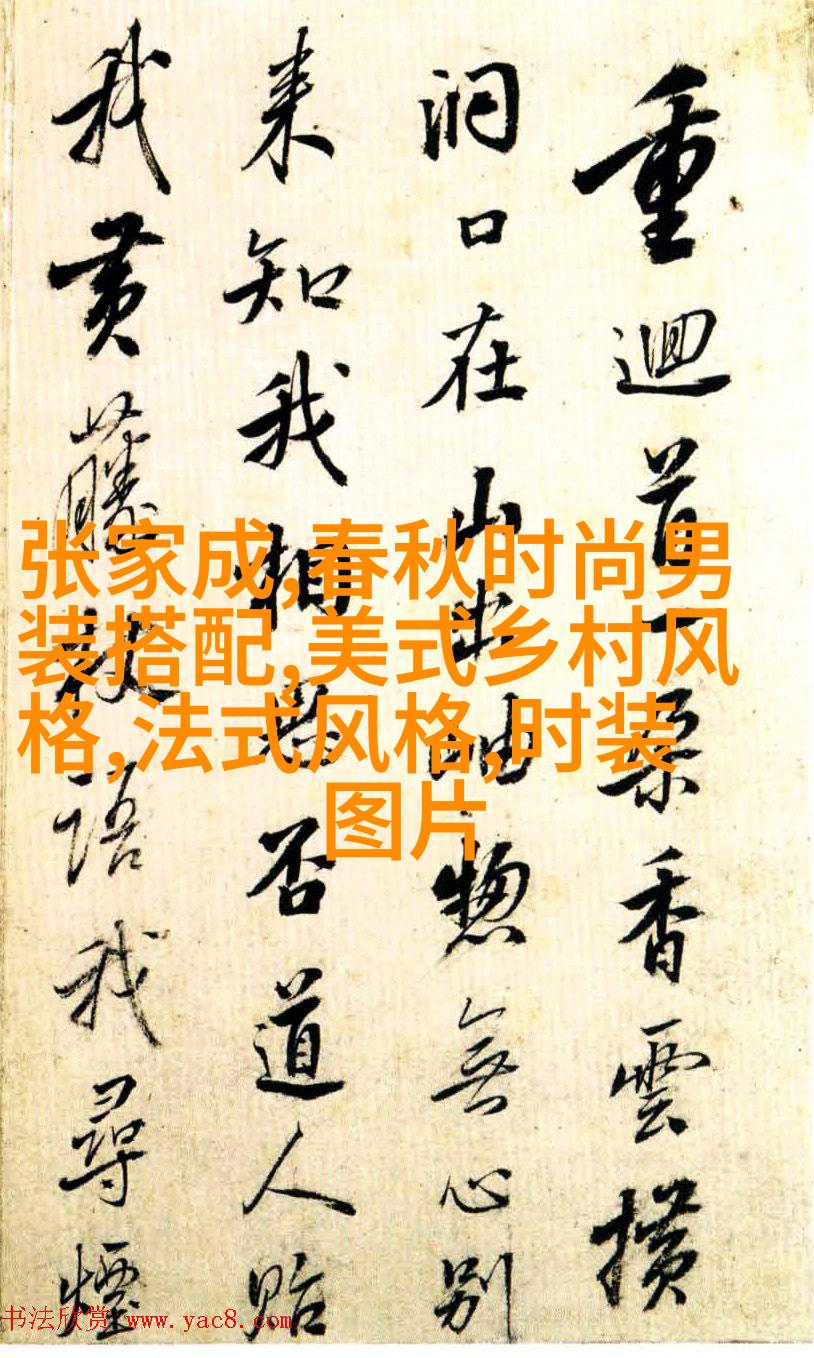 重迴首一朵香雲横
洞口在山出岫惣無心別
来知我相思否道人貽
我黄藤杖語我尋煙
张家成,春秋时尚男
装搭配,美式乡村风
格,法式风格,时装
图片
书法欣赏 www.yac8.com